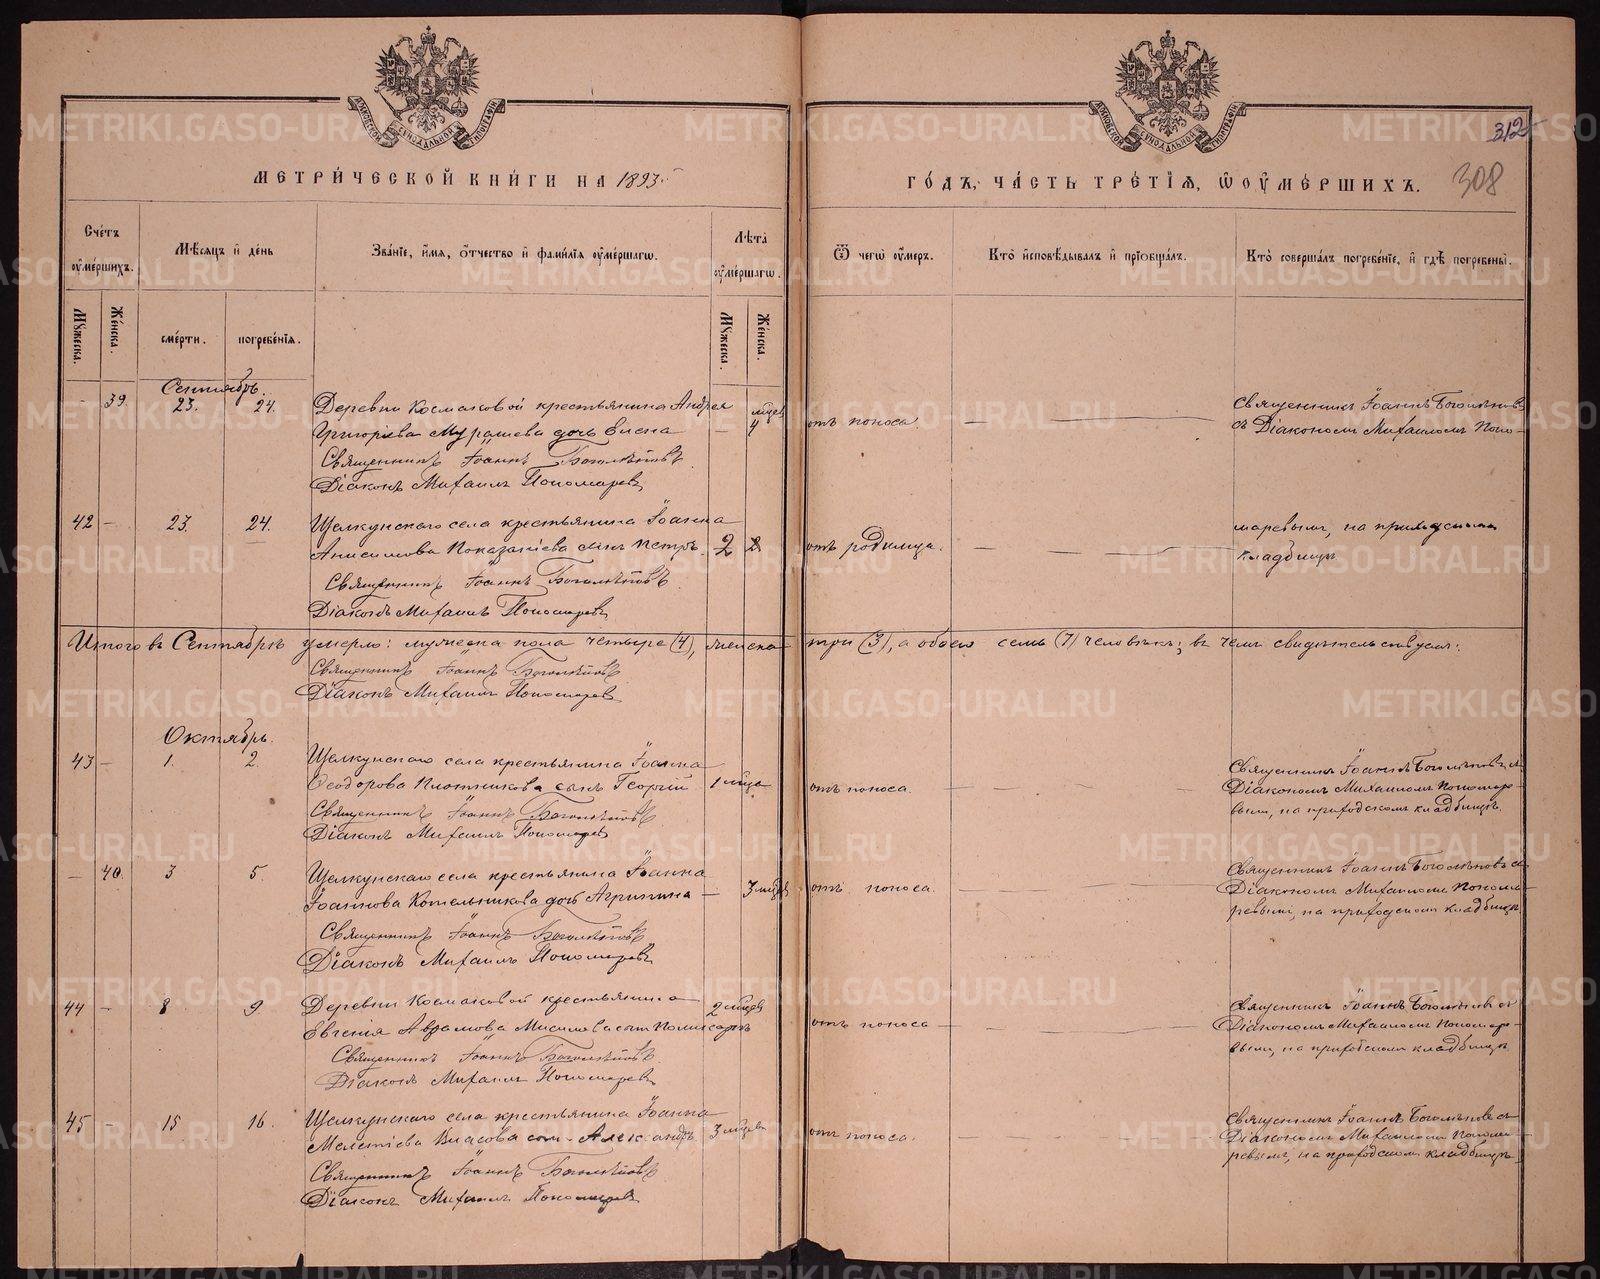 МЕТРИЧЕСКОЙ КНИГИ НА 1893
ГОДЪ, ЧАСТЬ ТРЕТІЯ, Ѿ ОУМЕРШИХЪ.
312
308
Счетъ оумершихъ.
Мѣсяцъ и день
Званіе, имя, отчество и фамилія оумершагѡ.
Лѣта оумершагѡ.
Ѿ чегѡ оумеръ.
Кто исповѣдывалъ и пріобщалъ.
Кто совершалъ погребеніе, и гдѣ погребены.
Мужеска.
Женска.
смерти.
погребенія.
Мужеска.
Женска.
Сентябрь.
- 39. 23. 24. Деревни Космаковой крестьянина Андрея
Григорьева Мурашева дочь 4 отъ поноса. — —
Священникъ Іоаннъ Боголѣповъ
Діаконъ Михаилъ Пономаревъ
Священникъ Іоаннъ Боголѣповъ
съ Діакономъ Михаиломъ Поно-
42 — 23. 24. Щелкунскаго села крестьянина Іоанна
Анисимова сынъ Петръ. 2 отъ родимца. — —
Священникъ Іоаннъ Боголѣповъ
Діаконъ Михаилъ Пономаревъ
маревымъ, на приходскомъ
кладбищѣ
Итого въ Сентябрѣ умерло: мужеска пола четыре (4), женска три (3), а обоего семь (7) человѣкъ; въ чемъ свидѣтельствуемъ:
Священникъ Іоаннъ Боголѣповъ
Діаконъ Михаилъ Пономаревъ
Октябрь.
43 — 1. 2. Щелкунскаго села крестьянина Іоанна
Ѳеодорова Плотникова сынъ Георгій 1 мѣца отъ поноса. — —
Священникъ Іоаннъ Боголѣповъ
Діаконъ Михаилъ Пономаревъ
Священникъ Іоаннъ Боголѣповъ съ
Діакономъ Михаиломъ Пономаре-
вымъ, на приходскомъ кладбищѣ.
— 40. 3 5. Щелкунскаго села крестьянина Іоанна
Іоаннова Котельникова дочь Агрипина — 3 мѣцев отъ поноса. — —
Священникъ Іоаннъ Боголѣповъ
Діаконъ Михаилъ Пономаревъ
Священникъ Іоаннъ Боголѣповъ съ
Діакономъ Михаиломъ Понома-
ревымъ, на приходскомъ кладбищѣ.
44 — 8 9. Деревни Космаковой крестьянина 2 мѣцев
Евгенія Аврамова сынъ отъ поноса — —
Священникъ Іоаннъ Боголѣповъ
Діаконъ Михаилъ Пономаревъ
Священникъ Іоаннъ Боголѣповъ съ
Діакономъ Михаиломъ Пономаре-
вымъ, на приходскомъ кладбищѣ
45 — 15 16. Щелкунскаго села крестьянина Іоанна
Мелетіева Власова сынъ Александръ 3 мѣцев отъ поноса. — —
Священникъ Іоаннъ Боголѣповъ
Діаконъ Михаилъ Пономаревъ
Священникъ Іоаннъ Боголѣповъ съ
Діакономъ Михаиломъ Понома-
ревымъ, на приходскомъ кладбищѣ.
METRIKI.GASO-URAL.RU